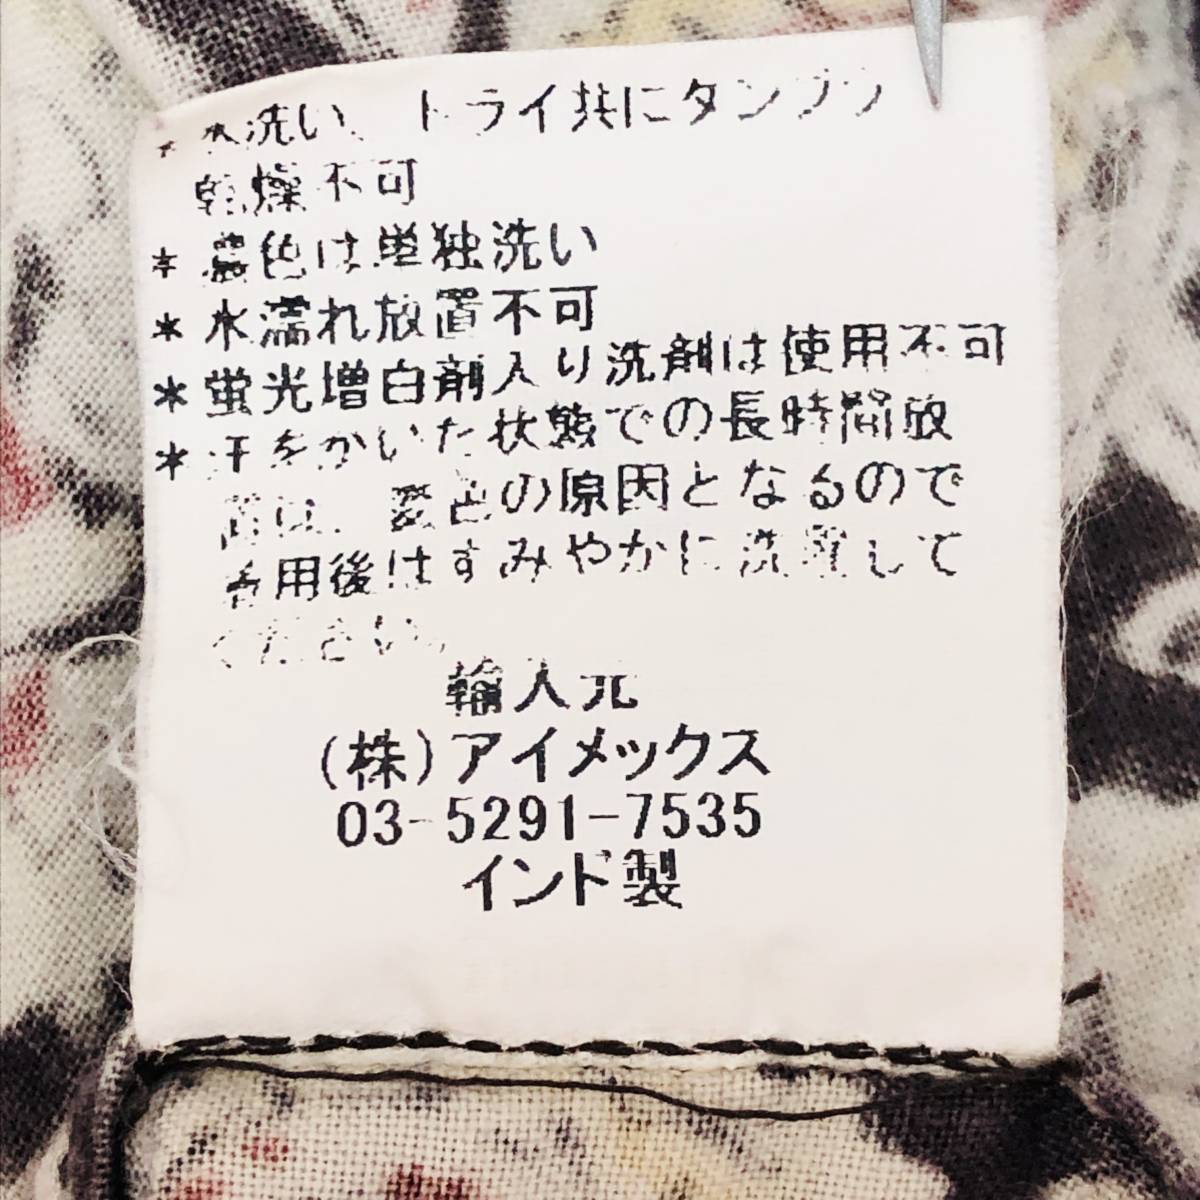 * 水洗い、ドライ共にタンブラ
乾燥不可
* 濃色は単独洗い
* 水濡れ放置不可
* 蛍光増白剤入り洗剤は使用不可
* 汗をかいた状態での長時間放
置は、変色の原因となるので
着用後はすみやかに洗濯して
ください。
輸入元
(株)アイメックス
03-5291-7535
インド製